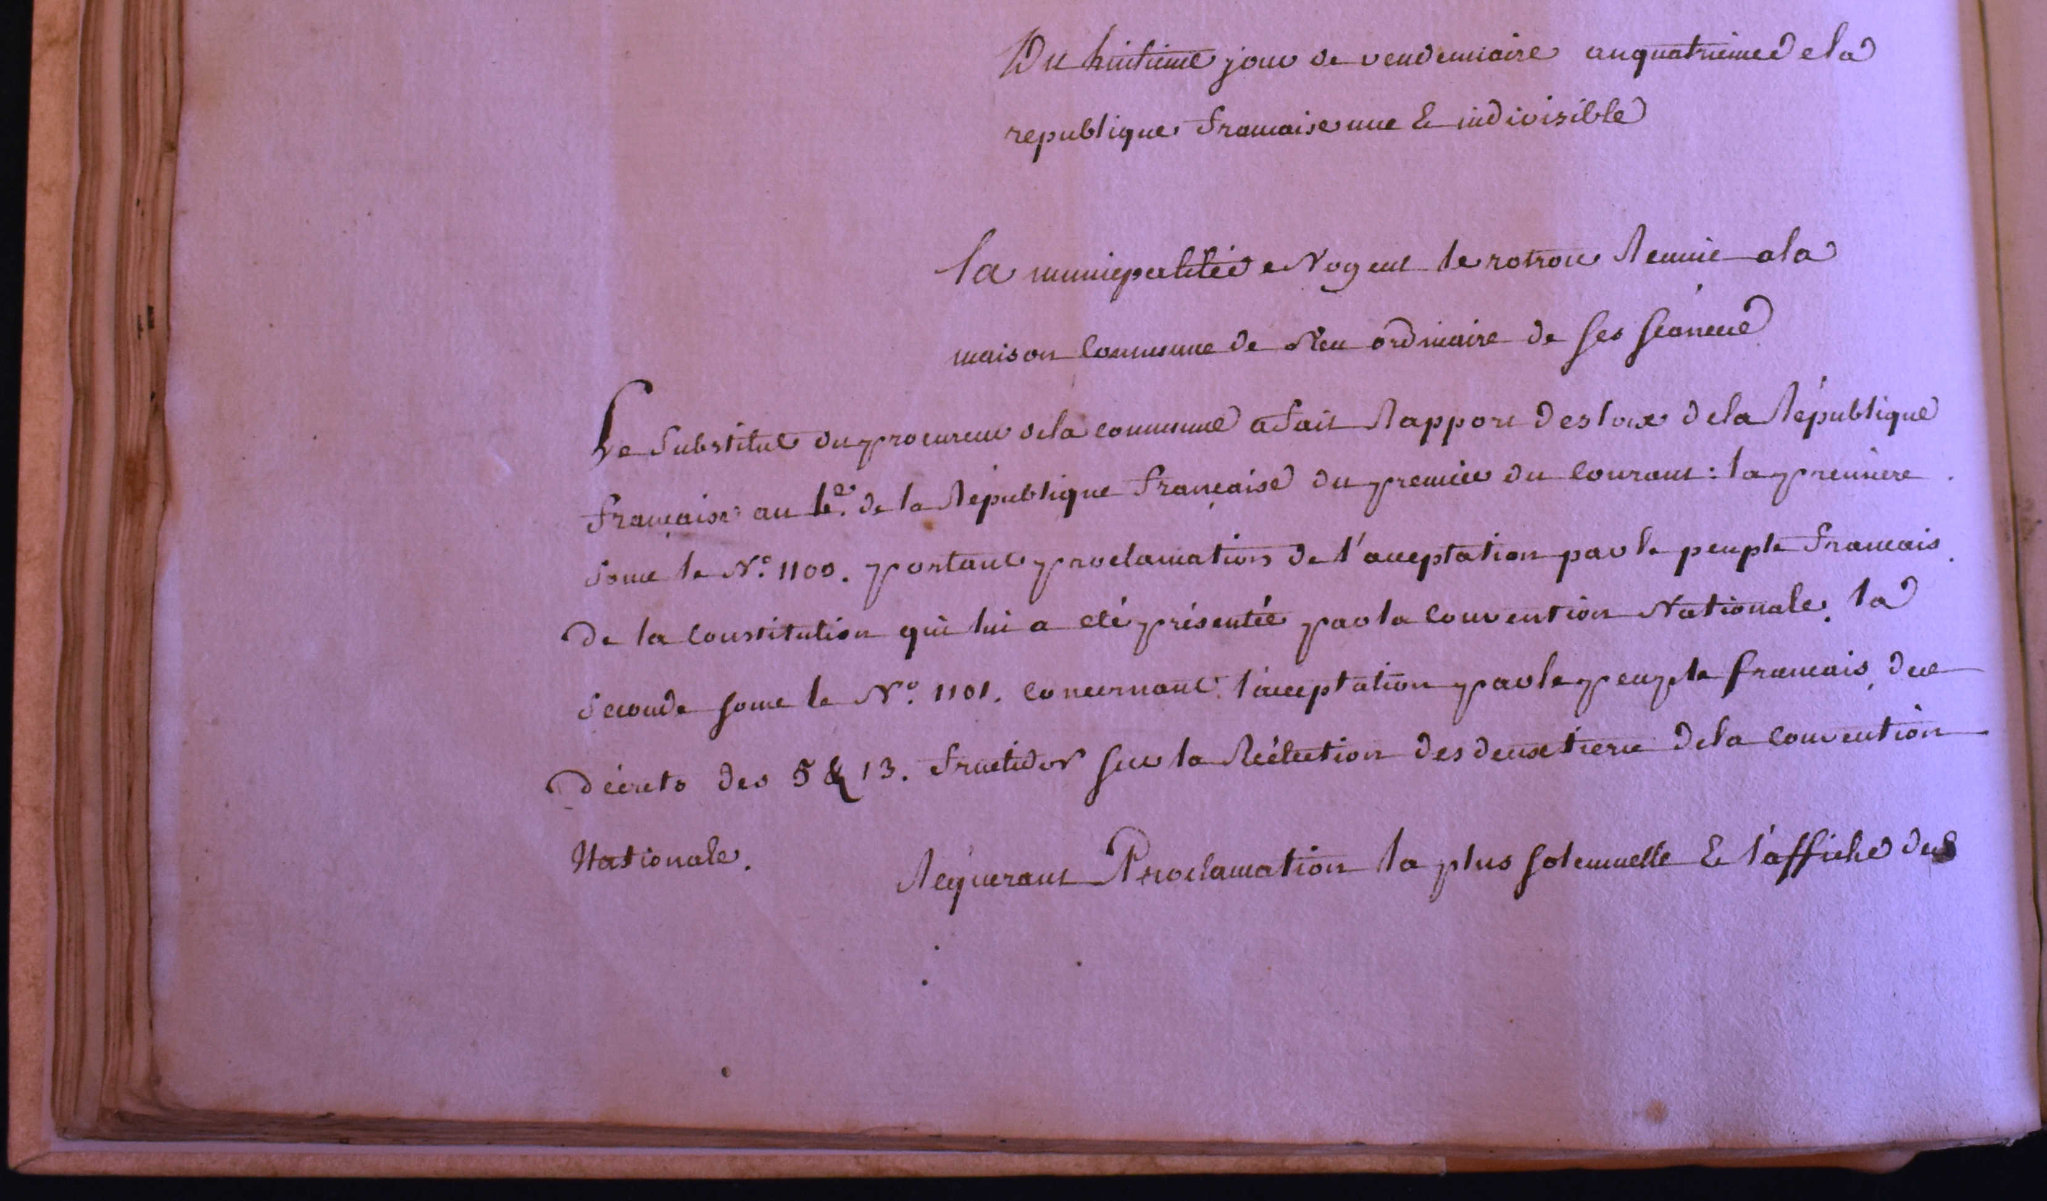 Du huitieme jour de vendemiaire an quatrieme de la
republique francaise une & indivisible
la municipalité de Nogent le rotrou Reunie a la
maison Commune lieu ordinaire de ses séances
Le substitut du procureur de la commune a fait Rapport des loix de la République
francaise au de la République française du premier du Courant : la premiere
sous le N.º 1100. portant proclamation de l'acceptation par le peuple francais
de la Constitution qui lui a été présentée par la Convention Nationale. la
seconde sous le N.º 1101. concernant l'acceptation par le peuple francais des
décrets des 5 & 13. fructidor sur la Réélection des deux tiers de la convention
Nationale.
Réquerant Proclamation la plus solemnelle & l'affiche des